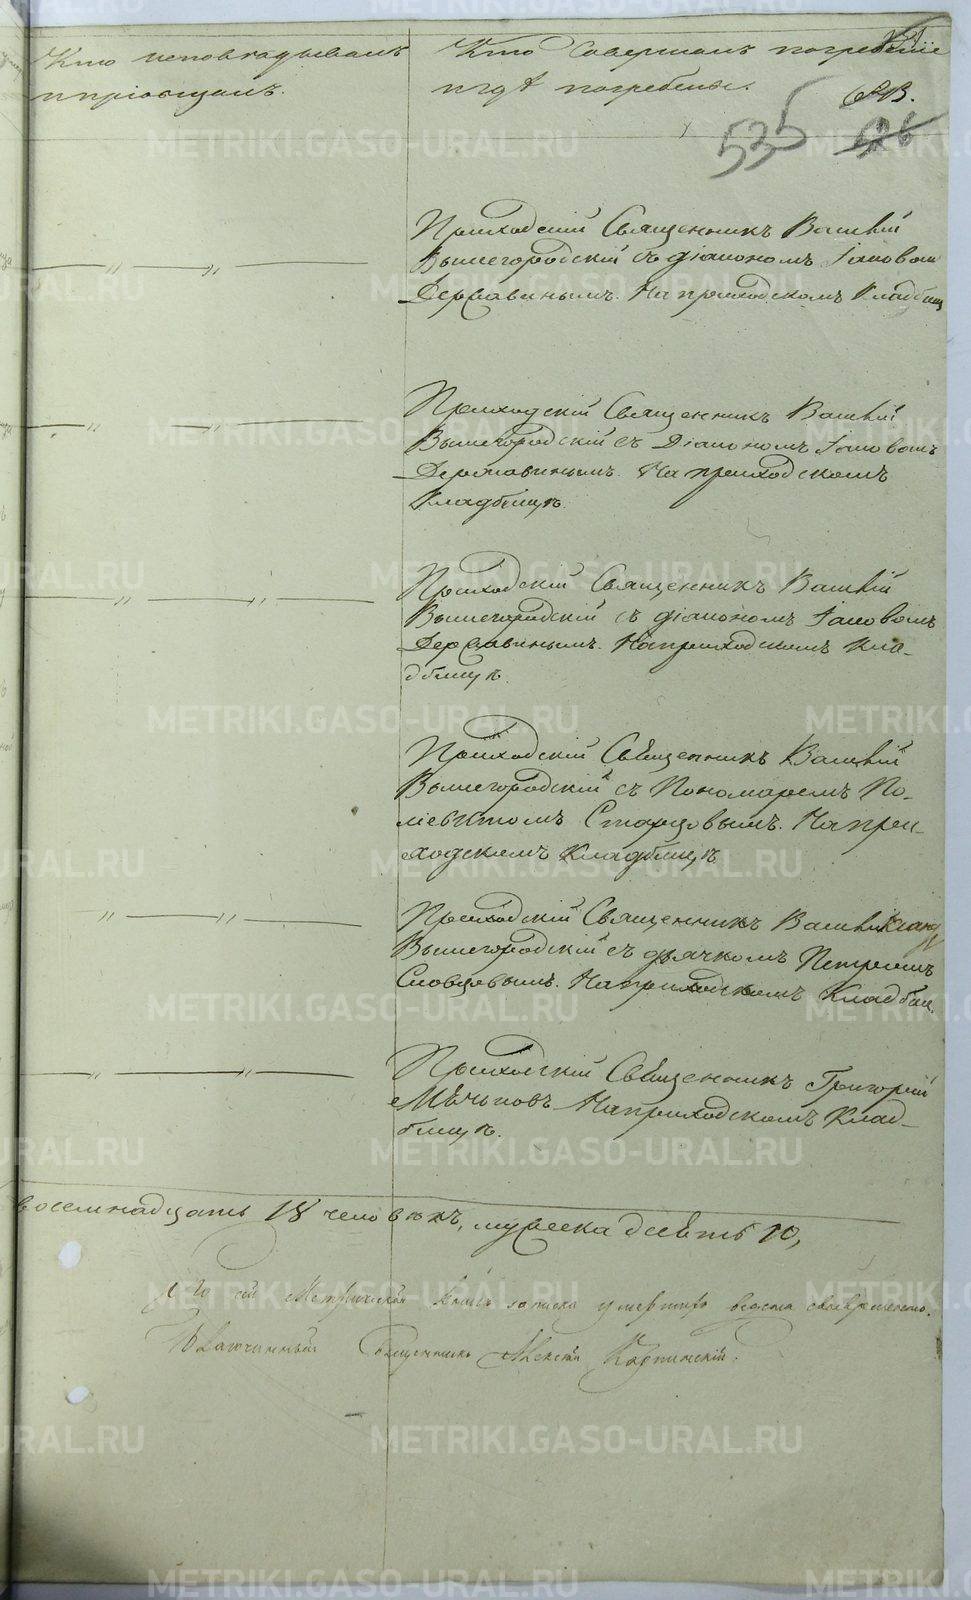 Кто исповѣдывалъ
и пріобщалъ.
Кто совершалъ погребеніе
и гдѣ погребены.
535
526
Приходскій Священникъ Василій
Вышегородскій съ діакономъ Іаковомъ
Державинымъ. На приходскомъ Кладбищ
Приходскій Священникъ Василій
Вышегородскій съ Діакономъ Іаковомъ
Державинымъ. На приходскомъ
Кладбищѣ.
Приходскій Священникъ Василій
Вышегородскій съ діакономъ Іаковомъ
Державинымъ. На приходскомъ кла-
дбищѣ.
Приходскій Священникъ Василій
Вышегородскій съ Пономаремъ По-
Старцовымъ. На при-
ходскомъ Кладбищѣ
Приходскій Священникъ Василій
Вышегородскій съ дьячкомъ Петромъ
Словцовымъ. На приходскомъ Кладбищ.
Приходскій Священникъ Григорій
На приходскомъ Клад-
бищѣ.
восемнадцать 18 человѣкъ, мужеска девять 10,
сей Метрической книгѣ записка умершихъ ведена своевременно.
Благочинный Священникъ Алексѣй Карпинскій.
METRIKI.GASO-URAL.RU